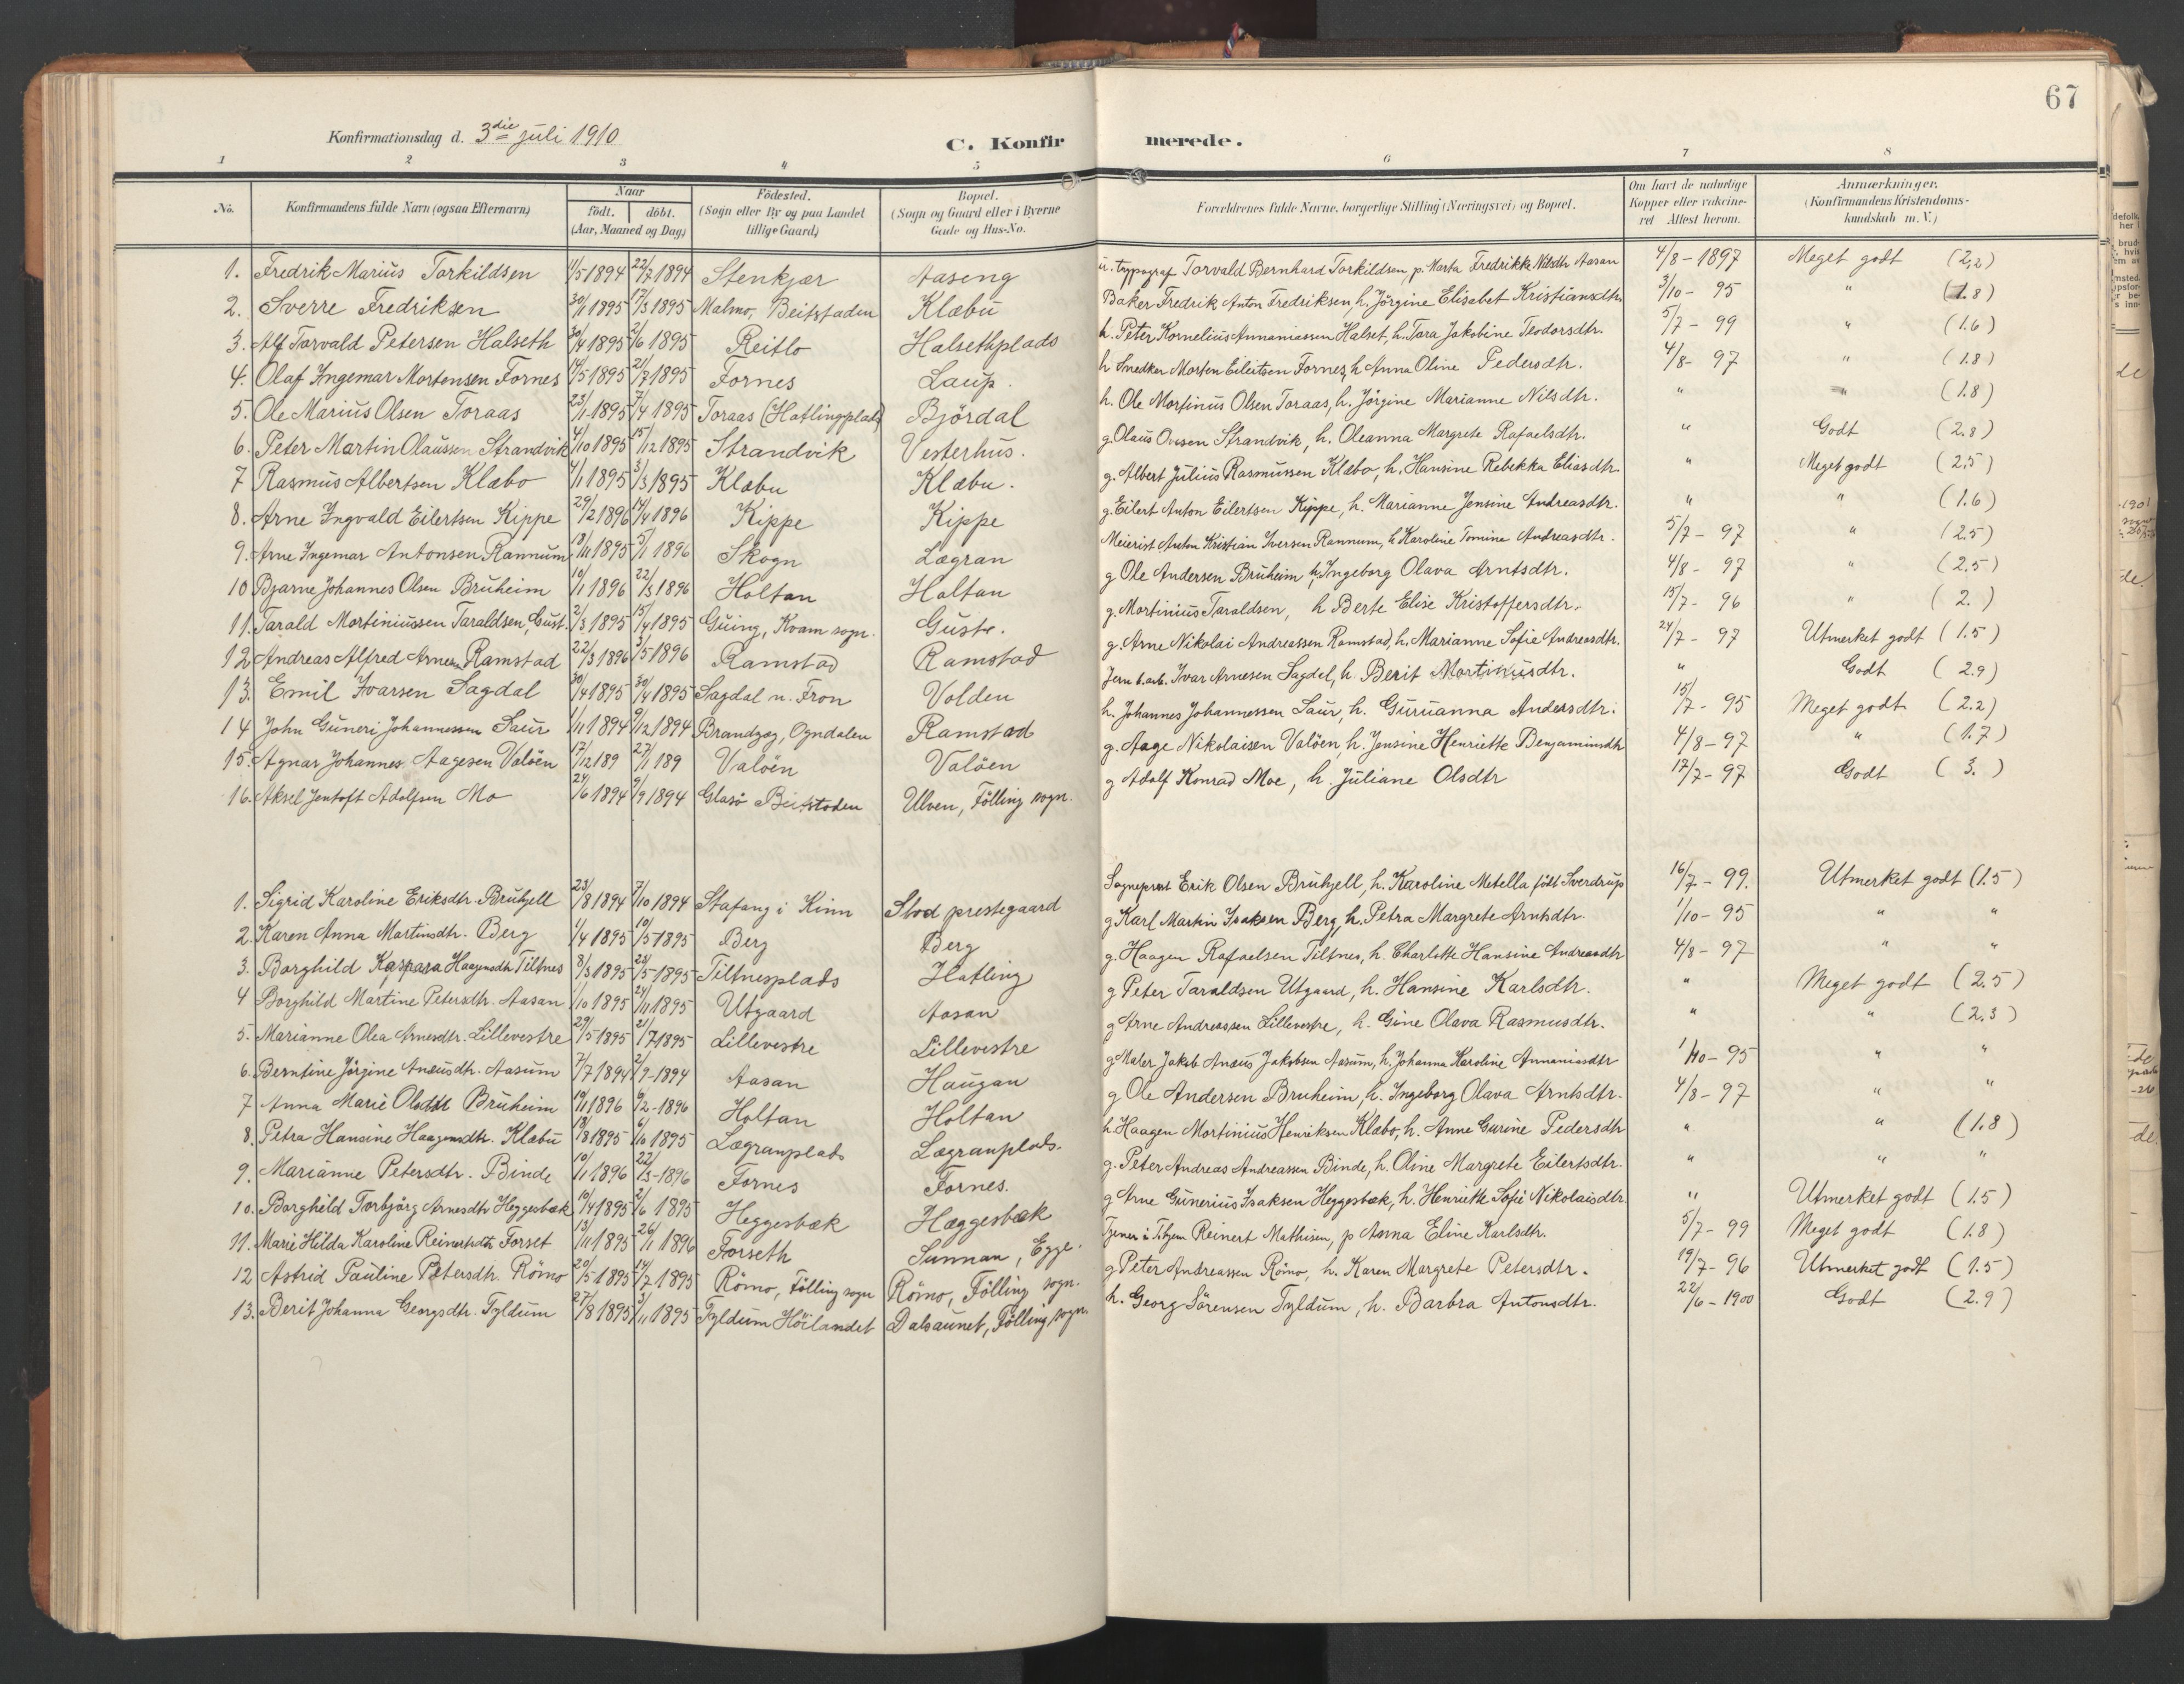 67
Konfirmationsdag d. 3die juli 1910
C. Konfirmerede.
1 2 3 4 5 6 7 8
No. Konfirmandens fulde Navn (ogsaa Efternavn) Naar födt. döbt. (Aar, Maaned og Dag) Födested. (Sogn eller By og paa Landet tillige Gaard) Bopæl. (Sogn og Gaard eller i Byerne Gade og Hus-No. Forældrenes fulde Navne, borgerlige Stilling (Næringsvei) og Bopæl. Om havt de naturlige Kopper eller vakcineret Attest herom. Anmærkninger. (Konfirmandens Kristendomskundskab m. V.)
1. Fredrik Marius Torkildsen 1/5 1894 22/7 1894 Stenkjær Aaseng u. typograf Torvald Bernhard Torkildsen, p. Marta Fredrikke Nilsdtr Aasan 4/8-1897 Meget godt (2,2)
2. Sverre Fredriksen 30/1 1895 17/3 1895 Malmo, Beitstaden Klæbu Baker Fredrik Anton Fredriksen, h. Jörgine Elisabet Kristiansdtr. 3/10- 95 " (1.8)
3. Alf Torvald Petersen Halseth 30/4 1895 2/6 1895 Reitlo Halsethplads h. Peter Kornelius Annaniassen Halset, h. Tora Jakobine Teodorsdtr. 5/7 - 99 " (1.6)
4. Olaf Ingemar Mortensen Fornes 14/5 1895 21/7 1895 Fornes Laup. h Snedker Morten Eilertsen Fornes, h Anna Oline Pedersdtr. 4/8- 97 " (1.8)
5. Ole Marius Olsen Toraas 23/1 1895 7/4 1895 Toraas (Hatlingplads) Björdal h. Ole Mortinus Olsen Toraas, h. Jörgine Marianne Nilsdtr. " " (1.8)
6. Peter Martin Olaussen Strandvik 4/10 1895 15/12 1895 Strandvik Vesterhus. g Olaus Ovesen Strandvik, h. Oleanna Margrete Rafaelsdtr. " Godt (2.8)
7 Rasmus Albertsen Klæbo 4/1 1895 3/3 1895 Klæbu Klæbu. g. Albert Julius Rasmussen Klæbo, h. Hansine Rebekka Eliasdtr. " Meget godt (2,5)
8. Arne Ingvald Eilertsen Kippe 29/2 1896 14/4 1896 Kippe Kippe g. Eilert Anton Eilertsen Kippe, h. Marianne Jensine Andreasdtr. " " (1.6)
9. Arne Ingemar Antonsen Rannum 18/11 1895 5/1 1896 Skogn Lægran Meierist Anton Kristian Iversen Rannum, h Karoline Tomine Andreasdtr. 5/7 - 97 " (2.5)
10 Bjarne Johannes Olsen Bruheim 10/1 1896 22/3 1896 Holtan Holtan g Ole Andersen Bruheim h. Ingeborg Olava Arntsdtr. 4/8 - 97 " (2.5)
11. Tarald Mortiniussen Taraldsen, Gust. 2/3 1895 15/4 1895 Guing, Kvam sogn. Guste. g. Mortinius Taraldsen, h Berte Elise Kristoffersdtr. 15/7- 96 " (2.)
12 Andreas Alfred Arnesen Ramstad 22/3 1896 3/5 1896 Ramstad Ramstad g. Arne Nikolai Andreassen Ramstad, h. Marianne Sofie Andreasdtr. 24/7 - 97 Utmerket godt (1.5)
13. Emil Ivarsen Sagdal 30/4 1895 30/4 1895 Sagdal n. Fron Volden Jern b. arb. Ivar Arnesen Sagdel, h. Berit Mortinusdtr. " Godt (2.9)
14 John Guneri Johannessen Saur 1/11 1894 9/12 1894 Brandzæg, Ogndalen Ramstad h. Johannes Johannessen Saur, h. Guruanna Andersdtr. 15/7 - 95 Meget godt (2.2)
15. Agnar Johannes Aagesen Valöen 17/12 189 27/1 189 Valöen Valöen g. Aage Nikolaisen Valöen, h. Jensine Henriette Benjaminsdtr 4/8-97 " (1.7)
16. Aksel Jentoft Adolfsen Mo 24/6 1894 9/9 1894 Glasö Beitstaden Ulven, Fölling sogn. g Adolf Konrad Moe, h. Juliane Olsdtr 17/7-97 Godt (3.)
1. Sigrid Karoline Eriksdtr. Bruhjell 23/8 1894 7/10 1894 Stafang i Kinn Stod prestegaard Sogneprest Erik Olsen Bruhjell, h. Karoline Metella född Sverdrup 16/7 - 99. Utmerket godt (1.5)
2. Karen Anna Martinsdtr. Berg 1/4 1895 10/5 1895 Berg Berg g Karl Martin Isaksen Berg, h. Petra Margrete Arntsdtr. 1/10 - 95 " "
3. Borghild Kaspara Haagensdtr Tiltnes 8/3 1895 23/5 1895 Tiltnesplads Hatling g. Haagen Rafaelsen Tiltnes, h. Charlotte Hansine Andreasdtr 4/8 - 97 " "
4 Borghild Martine Petersdtr. Aasan 1/10 1895 24/11 1895 Utgaard Aasan g Peter Taraldsen Utgaard, h. Hansine Karlsdtr. " Meget godt (2.5)
5. Marianne Olea Arnesdtr. Lillevestre 29/5 1895 21/7 1895 Lillevestre Lillevestre g Arne Andreassen Lillevestre, h. Gine Olava Rasmusdtr. " " (2.3)
6. Berntine Jörgine Anæusdtr. Aasum 7/7 1894 2/9-1894 Aasan Haugan g Maler Jakob Anæus Jakobsen Aasum, h. Johanna Karoline Annaniasdtr 1/10-95 " "
7 Anna Marie Olsdtr Bruheim 10/1 1896 9/2-1896 Holtan Holtan g Ole Andersen Bruheim, h. Ingeborg Olava Arntsdtr. 4/8-97 " "
8. Petra Hansine Haagensdtr. Klæbu 18/8 1895 6/10 1895 Lægranplads Lægranplads. h. Haagen Mortinius Henriksen Klæbo, h. Anne Gurine Pedersdtr " " (1.8)
9. Marianne Petersdtr. Binde 10/1 1896 22/3-1896 Fornes Fornes. g. Peter Andreas Andreassen Binde, h. Oline Margrete Eilertsdtr. " " "
10. Borghild Torbjörg Arnesdtr Heggesbæk 10/4 1895 2/6 1895 Heggesbæk Hæggesbæk g Arne Gunerius Isaksen Heggesbæk, h. Henriette Sofie Nikolaisdtr. " Utmerket godt (1.5)
11. Marie Hilda Karoline Reinertsdtr Forset 13/11 1895 26/1 1896 Forseth Sunnan, Egge. Reinert Mathisen, p Anna Eline Karlsdtr. 5/7-99 Meget godt (1.8)
12 Astrid Pauline Petersdtr. Römo 20/5 1895 14/7 1895 Römo, Fölling sogn Römo, Fölling sogn. g Peter Andreassen Römo, h. Karen Margrete Petersdtr. 19/7-96 Utmerket godt (1.5)
13. Berit Johanna Georgsdtr. Tyldum 27/8 1895 3/11 1895 Tyldum Höilandet Dalsaunet, Fölling sogn. h. Georg Sörensen Tyldum, h. Barbra Antonsdtr. 22/6-1900 Godt (2.9)